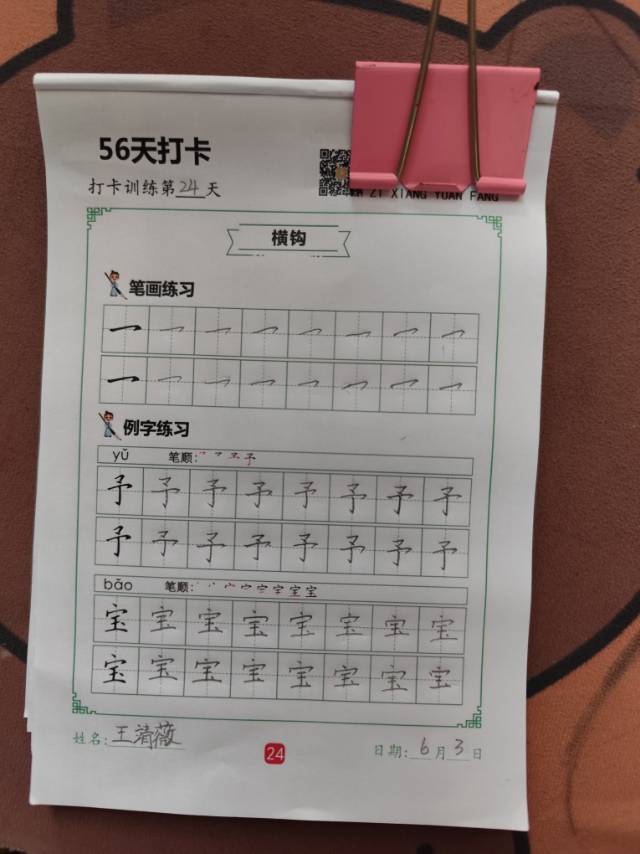 56天打卡
打卡训练第24天
ZI XIANG YUAN FANG
横钩
笔画练习
例字练习
yǔ 笔顺:
予 予 予 予 予 予 予 予
予 予 予 予 予 予 予 予
bǎo 笔顺:
宝 宝 宝 宝 宝 宝 宝 宝
宝 宝 宝 宝 宝 宝 宝 宝
姓名:王清薇
24
日期:6月3日